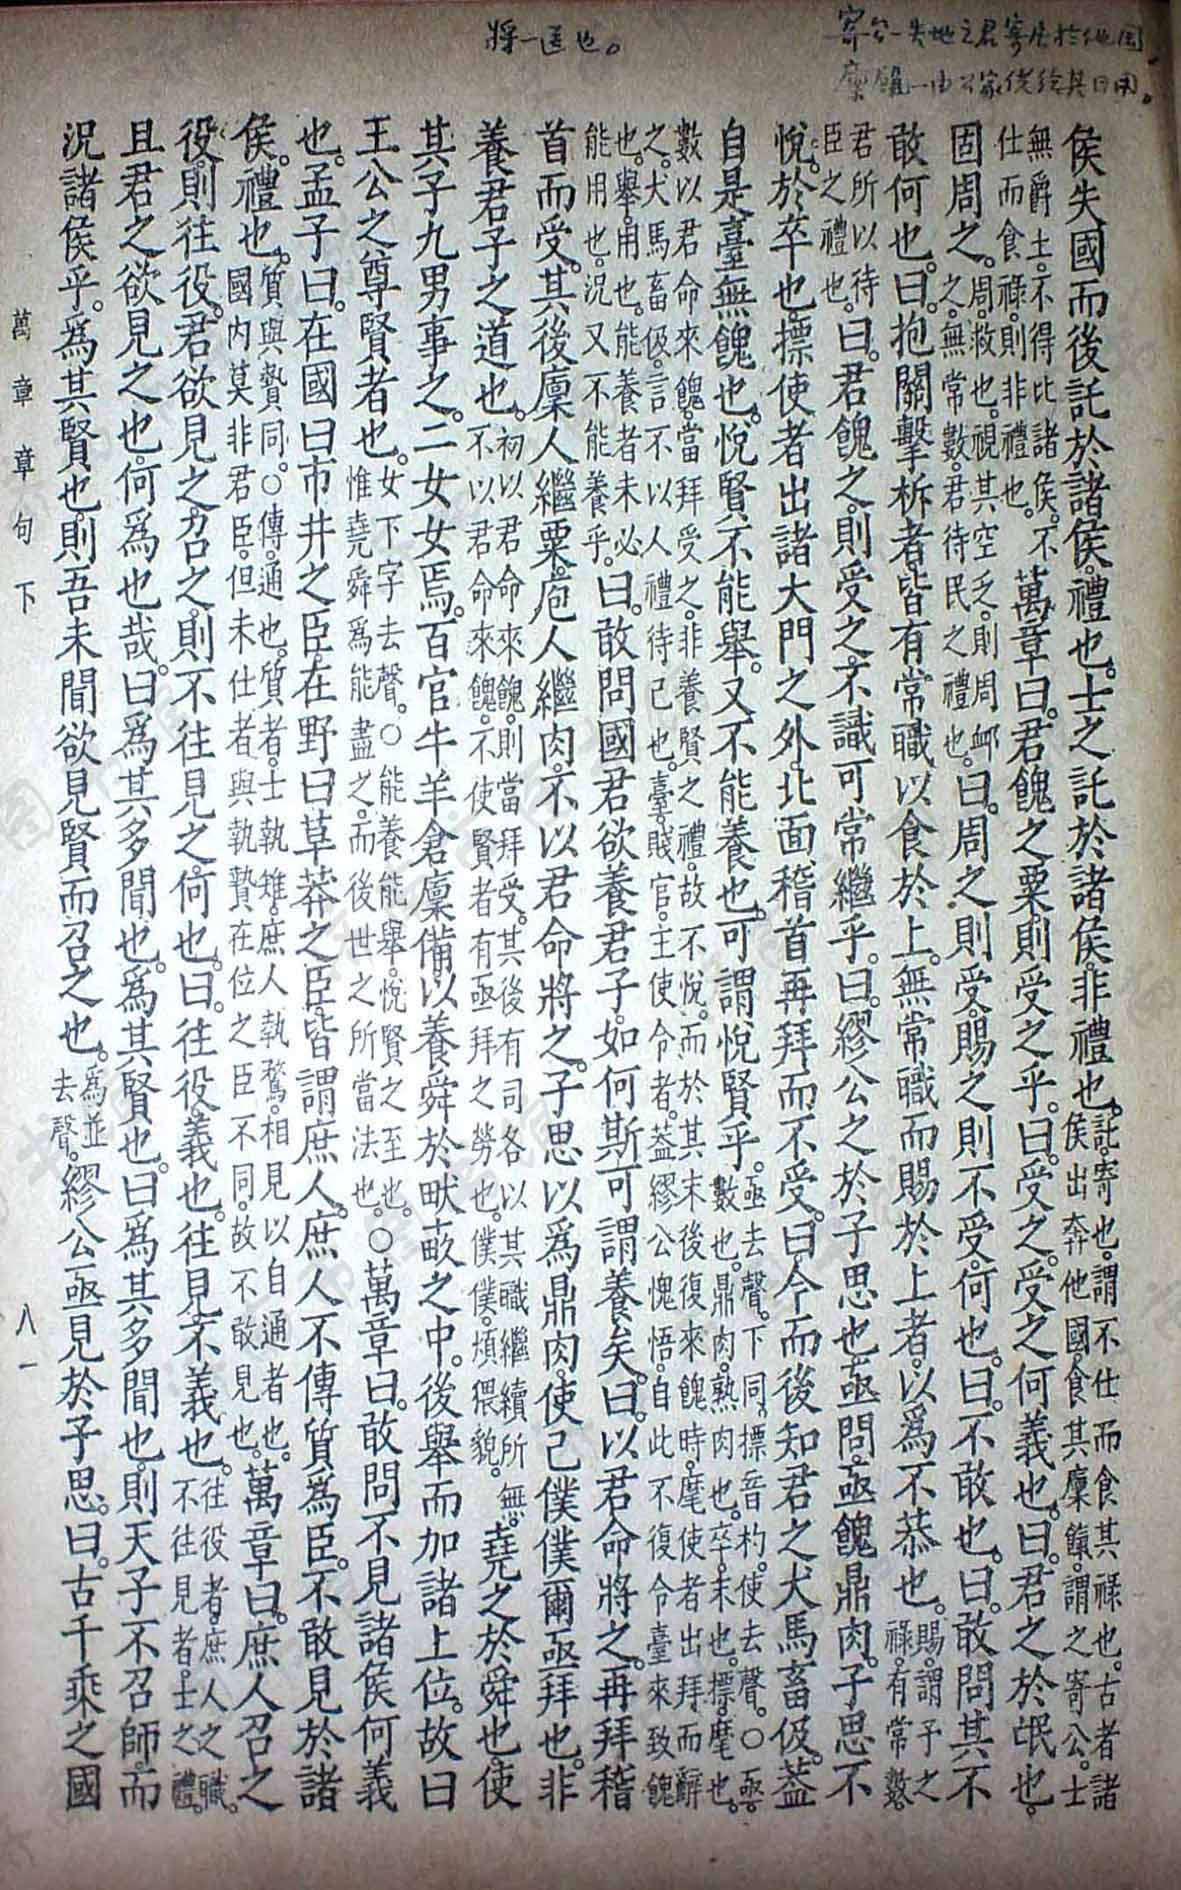 寄公—失地之君寄居於他国
廩餼—由公家供给其日用。
將—送也。
侯失國而後託於諸侯。禮也。士之託於諸侯。非禮也。託。寄也。謂不仕而食其祿也。古者諸侯出奔他國。食其廩餼。謂之寄公。士
無爵土。不得比諸侯。不仕而食祿。則非禮也。萬章曰。君餽之粟。則受之乎。曰。受之。受之何義也。曰。君之於氓也。
固周之。周。救也。視其空乏。則周卹之。無常數。君待民之禮也。曰。周之則受。賜之則不受。何也。曰。不敢也。曰。敢問其不
敢何也。曰。抱關擊柝者。皆有常職以食於上。無常職而賜於上者。以爲不恭也。賜。謂予之祿。有常數。
君所以待臣之禮也。曰。君餽之。則受之。不識可常繼乎。曰。繆公之於子思也。亟問。亟餽鼎肉。子思不
悅。於卒也。摽使者出諸大門之外。北面稽首再拜而不受。曰。今而後知君之犬馬畜伋。蓋
自是臺無餽也。悅賢不能舉。又不能養也。可謂悅賢乎。亟去聲。下同。摽音杓。使去聲。○亟。數也。鼎肉。熟肉也。卒。末也。摽。麾也。
數以君命來餽。當拜受之。非養賢之禮。故不悅。而於其末後復來餽時。麾使者出拜而辭之。犬馬畜伋。言不以人禮待己也。臺。賤官。主使令者。蓋繆公愧悟。自此不復令臺來致餽
也。舉。用也。能養者未必能用也。況又不能養乎。曰。敢問國君欲養君子。如何斯可謂養矣。曰。以君命將之。再拜稽
首而受。其後廩人繼粟。庖人繼肉。不以君命將之。子思以爲鼎肉。使己僕僕爾亟拜也。非
養君子之道也。初以君命來餽。則當拜受。其後有司各以其職繼續所無。不以君命來餽。不使賢者有亟拜之勞也。僕僕。煩猥貌。堯之於舜也。使
其子九男事之。二女女焉。百官牛羊倉廩備。以養舜於畎畝之中。後舉而加諸上位。故曰
王公之尊賢者也。女下字去聲。○能養能舉。悅賢之至也。惟堯舜爲能盡之。而後世之所當法也。○萬章曰。敢問不見諸侯何義
也。孟子曰。在國曰市井之臣。在野曰草莽之臣。皆謂庶人。庶人不傳質爲臣。不敢見於諸
侯。禮也。質與贄同。○傳。通也。質者。士執雉。庶人執鶩。相見以自通者也。國內莫非君臣。但未仕者與執贄在位之臣不同。故不敢見也。萬章曰。庶人召之
役。則往役。君欲見之。召之。則不往見之。何也。曰。往役。義也。往見。不義也。往役者。庶人之職。不往見者。士之禮。
且君之欲見之也。何爲也哉。曰。爲其多聞也。爲其賢也。曰。爲其多聞也。則天子不召師。而
況諸侯乎。爲其賢也。則吾未聞欲見賢而召之也。爲並去聲。繆公亟見於子思。曰。古千乘之國
萬章章句下 八一